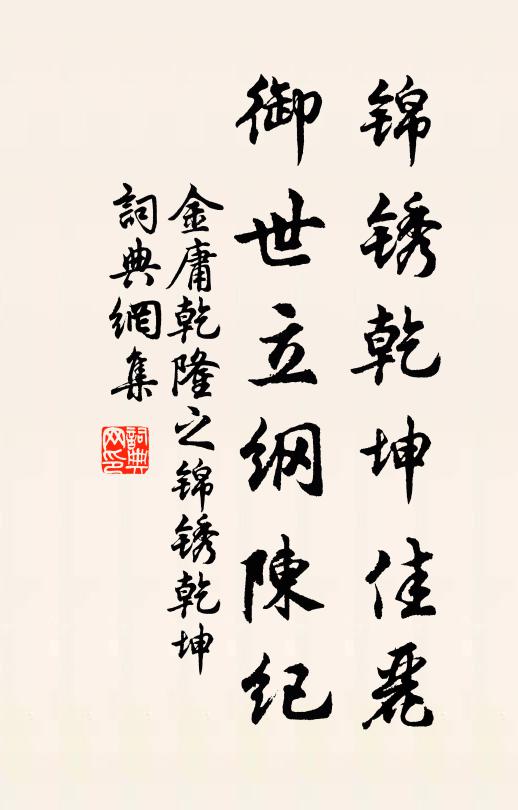 锦锈乾坤佳麗
御世立纲陳纪
金庸乾隆之锦锈乾坤
詞典網集
詞典
网印